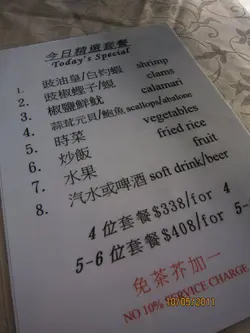 今日精選套餐
Today's Special
1. 豉油皇/白灼蝦 shrimp
2. 豉椒蟶子/蜆 clams
3. 椒鹽鮮魷 calamari
4. 蒜茸元貝/鮑魚 scallops/abalone
5. 時菜 vegetables
6. 炒飯 fried rice
7. 水果 fruit
8. 汽水或啤酒 soft drink/beer
4 位套餐$338/for 4
5-6 位套餐$408/for 5-
免茶芥加一
NO 10% SERVICE CHARGE
10/05/2011